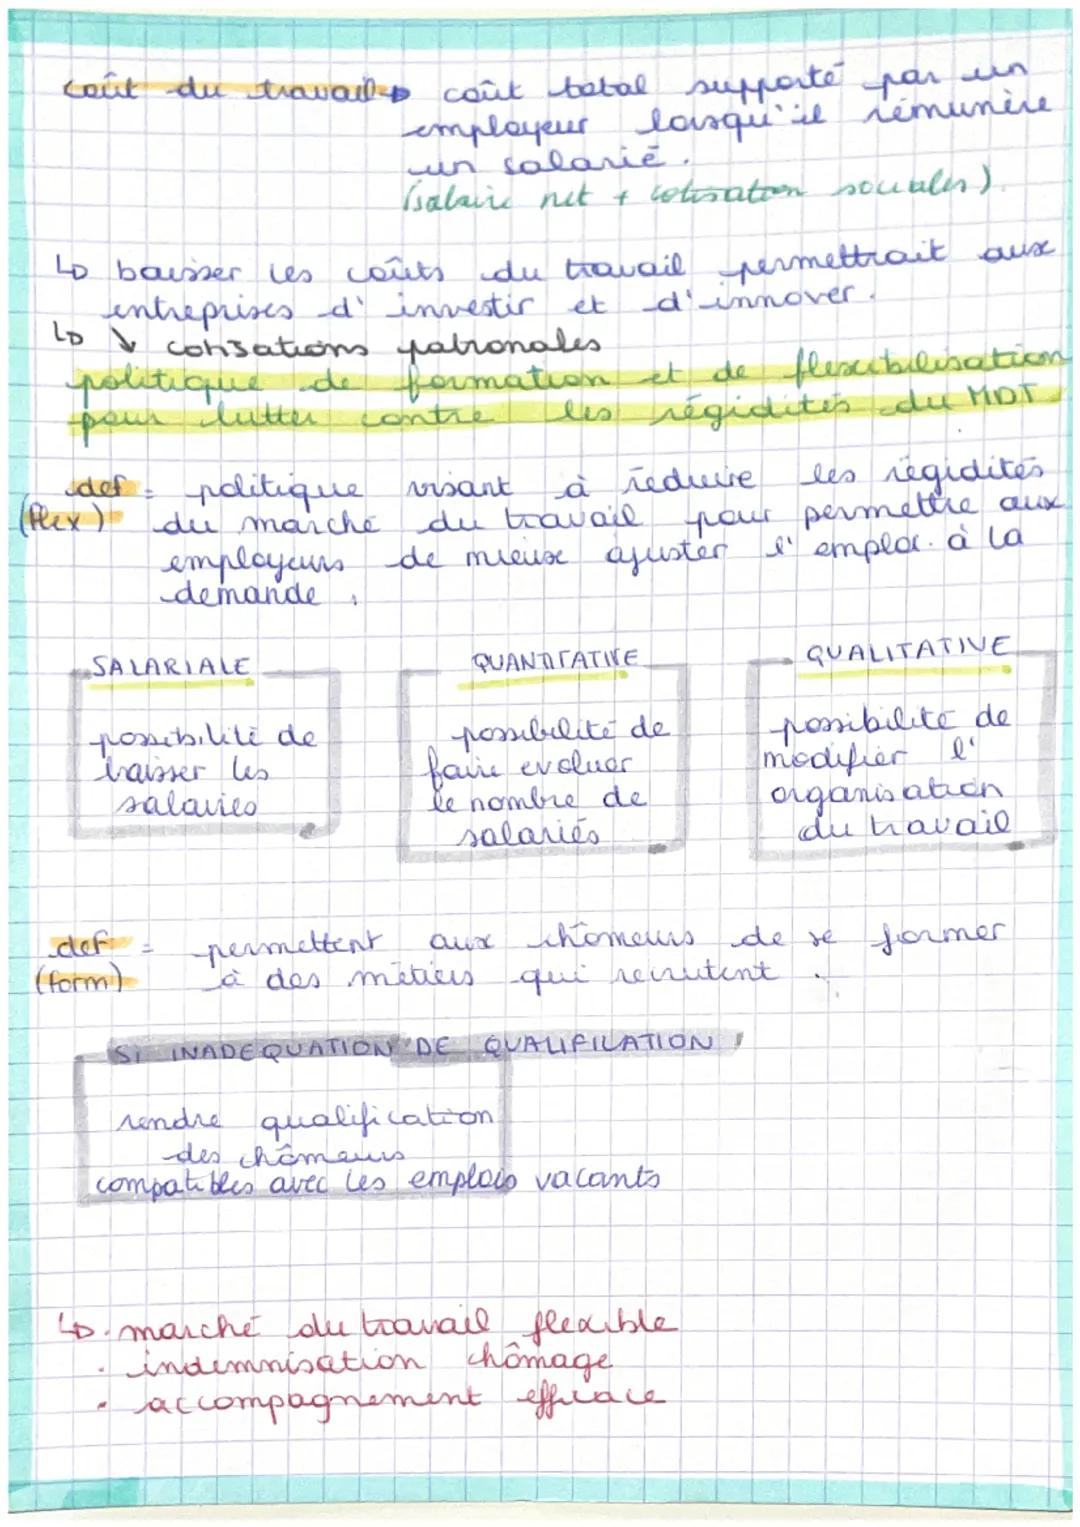 coût du travail → coût total supporté par un
employeur lorsqu'il rémunère
un salarié.
(salaire net + cotisation sociales).
↳ baisser les coûts du travail permettrait aux
entreprises d'investir et d'innover.
↳ ↘ cotisations patronales
politique de formation et de flexibilisation
pour lutter contre les régidités du MDT
def = politique visant à réduire les régidités
(flex) du marché du travail pour permettre aux
employeurs de mieux ajuster l'emploi à la
demande.
SALARIALE
possibilité de
baisser les
salaires
QUANTITATIVE
possibilité de
faire evoluer
le nombre de
salariés
QUALITATIVE
possibilité de
modifier l'
organisation
du travail
def = permettent aux chômeurs de se former
(form) à des métiers qui recrutent.
SI INADEQUATION DE QUALIFICATION
rendre qualification
des chômeurs
compatibles avec les emplois vacants
↳ . marché du travail flexible
. indemnisation chômage
. accompagnement efficace